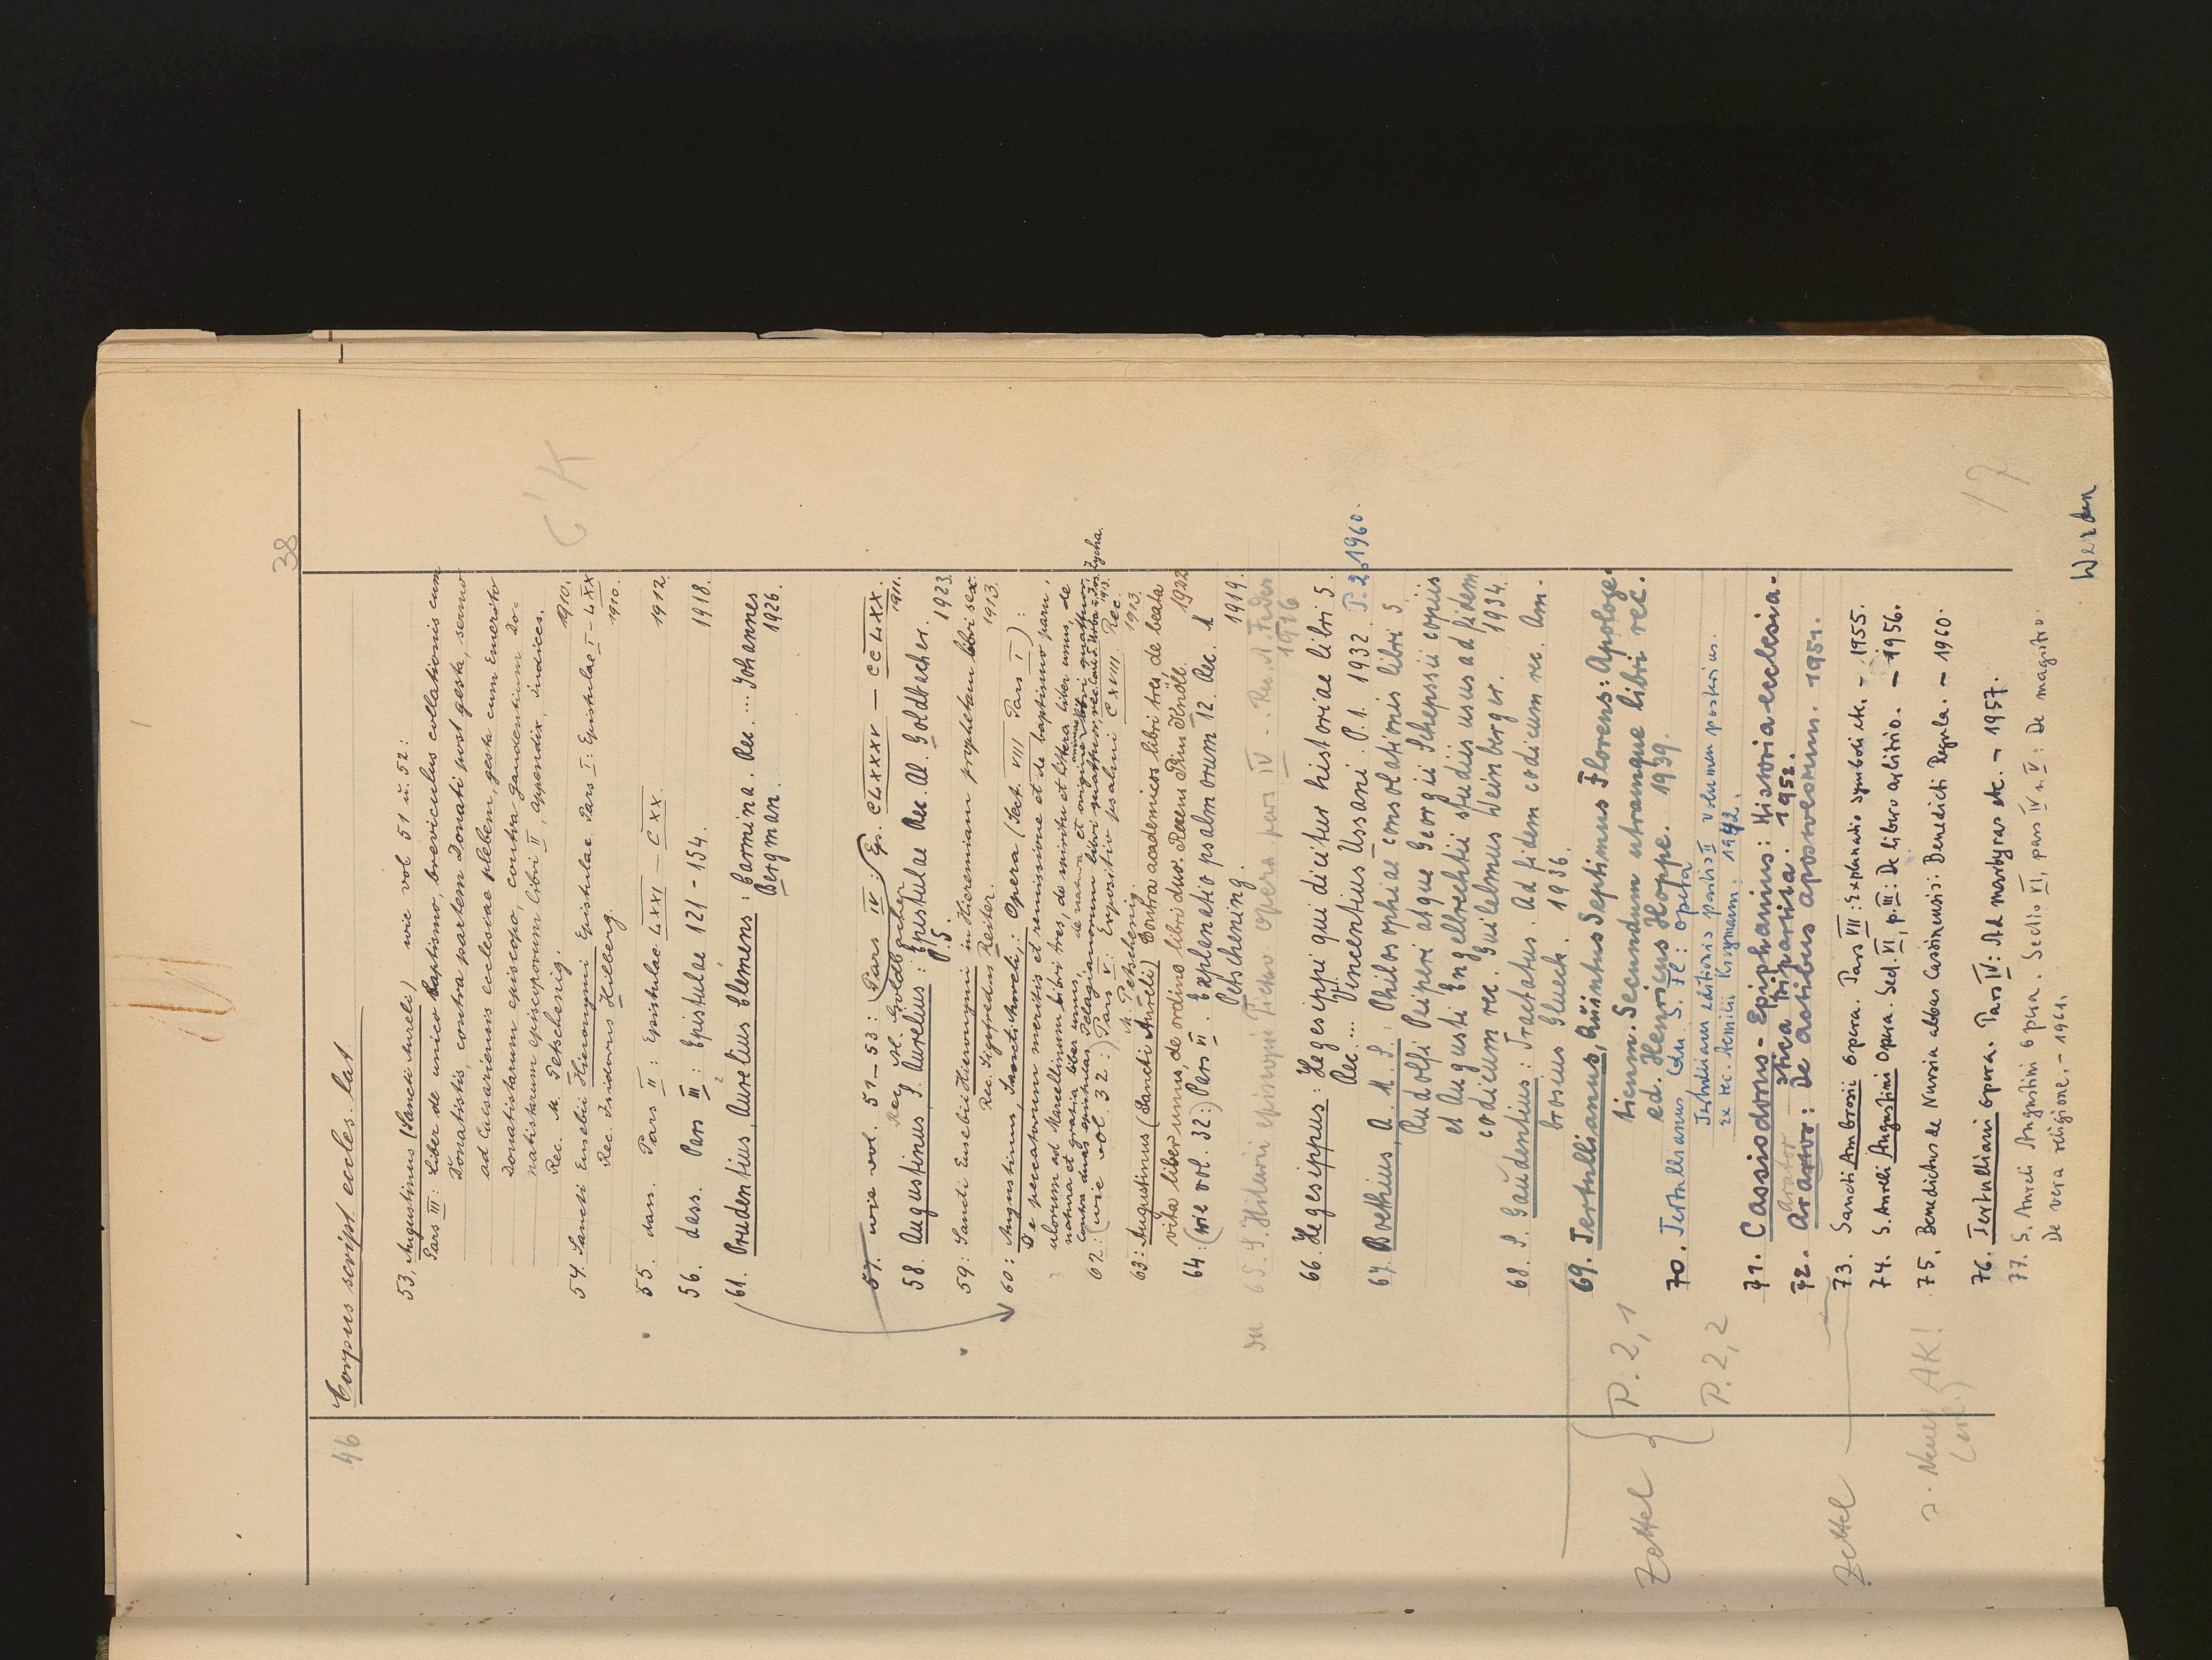 38
46
Corpus script. eccles. lat
53. Augustinus (Sancti Aureli) wie vol 51 u. 52:
Pars III: Liber de unico baptismo, breviculus collationis cum
Donatistis, contra partem Donati post gesta, sermo
ad Caesariensis ecclesiae plebem, gesta cum Emerito
Donatistarum episcopo, contra Gaudentium Do-
natistarum episcoporum libri II, appendix, indices.
Rec. M. Petschenig. 1910.
54. Sancti Eusebii Hieronymi Epistulae Pars I: Epistulae I – LXX
Rec. Isidorus Hilberg. 1910.
55. dass. Pars II: Epistulae LXXI – CXX. 1912.
56. dass. Pars III: Epistulae 121 - 154. 1918.
61. Prudentius, Aurelius Clemens: Carmina. Rec. ... Johannes
Bergman. 1926.
57. wie vol. 51–53: (Pars IV.) Ep. CLXXXV – CCLXX.
Rec. Al. Goldbacher 1911.
58. Augustinus, S. Aurelius: Epistulae Rec. Al. Goldbacher.
P. 5. 1923.
59: Sancti Eusebii Hieronymi in Hieremiam prophetam libri sex.
Rec. Sigofredus Reiter. 1913.
60: Augustinus Sancti Aureli: Opera (Sect. VIII Pars I):
De peccatorum meritis et remissione et de baptismo parv-
ulorum ad Marcellinum libri tres, de spiritu et littera liber unus, de
natura et gratia liber unus, de natura et origine animae libri quattuor,
contra duas epistulas Pelagianorum libri quattuor, rec. Carol. Urba et Jos. Zycha.
1913.
62: (wie vol. 32:) Pars V: Expositio psalmi CXVIII. Rec.
M. Petschenig. 1913.
63: Augustinus (Sancti Aureli) Contra academicos libri tres, de beata
vita liber unus, de ordine libri duo. Recens Pius Knöll. 1922
64: (wie vol. 32:) Pars VI. Explanatio psalmorum 12. Rec. M
Petschening. 1919.
65. S. Hilarii episcopi Pictav opera pars IV. Rec. A. Feder
1916
66. Hegesippus: Hegesippi qui dicitur historiae libri 5.
Rec... Vincentius Ussani. P. 1. 1932. P. 2. 1960.
67. Boethius, A. M. S.: Philosophiae consolationis libri 5.
Rudolfi Peiperi atque Georgii Schepssii copiis
et Augusti Engelbrechtii studiis usus ad fidem
codicum rec. Guilelmus Weinberger. 1934.
68. S. Gaudentius: Tractatus. Ad fidem codicum rec. Am-
brosius Glueck. 1936.
69. Tertullianus, Quintus Septimus Florens: Apologe-
ticum. Secundum utramque libri rec.
ed. Henricus Hoppe. 1939.
Zettel { P. 2,1
P. 2,2
70. Tertullianus Qu. S. Fl: opera
Tertulliani editionis partis II volumen posterius.
Ex rec. Aemilii Kroymann. 1942.
71. Cassiodorus-Epiphanius: Historia ecclesia-
stica tripartita. 1952.
72. Arator: De actibus apostolorum. 1951.
Arator
Zettel
73. Sancti Ambrosii opera. Pars VII: Explanatio symboli etc. – 1955.
74. S. Aureli Augustini opera. Sect. VI, p. III: De libero arbitrio. – 1956.
75. Benedictus de Nursia abbas Casinensis: Benedicti Regula. – 1960.
s. Neuer AK!
76. Tertulliani opera. Pars IV: Ad martyras etc. – 1957.
77. S. Aureli Augustini opera. Sectio VI, pars IV u. V: De magistro.
De vera religione. – 1961.
17